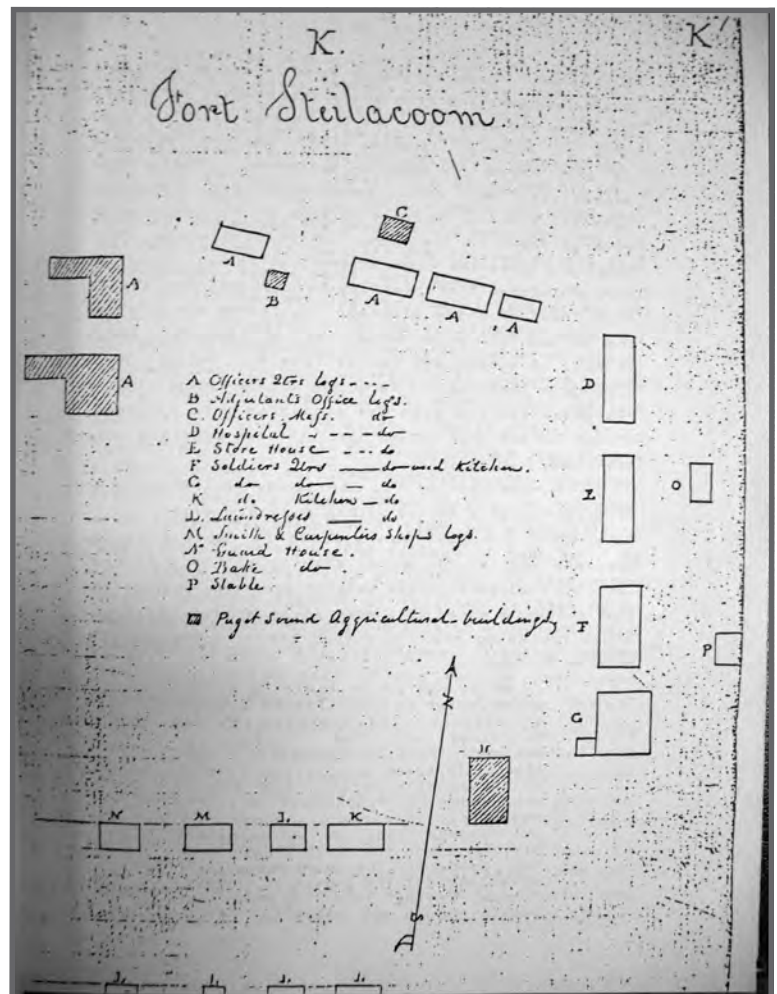 K. K
Fort Steilacoom.
C
A
A
B
A A A
A
D
A Officers Qtrs logs - - - -
B Adjutants Office logs.
C. Officers Mess. do
D Hospital - - - - do
E Store House - - - do
F Soldiers Qtrs —— do and Kitchen.
G do do — do
K do. Kitchen — do
L. Laundresses —— do
M Smith & Carpenters Shops logs.
N Guard House.
O Bake do.
P Stable
Puget Sound Aggricultural buildings
E
O
F
P
G
N
H
N M L K
S
L. L. L. L.